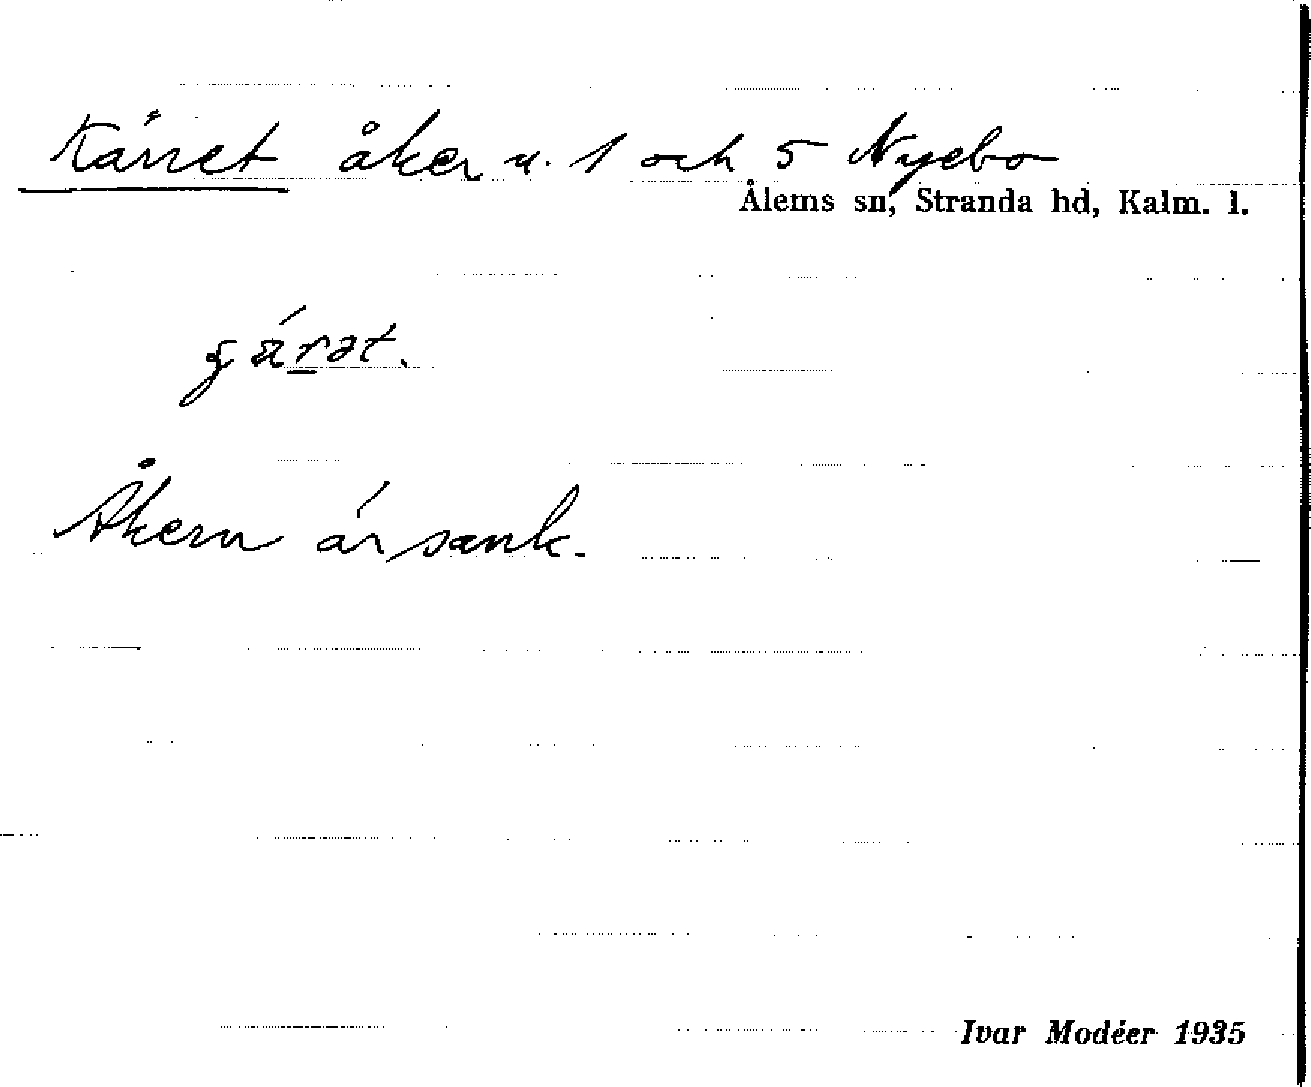 Kärret åker u. 1 och 5 Nyebo
Ålems sn, Stranda hd, Kalm. l.
Åkern är sank.
Ivar Modéer 1935